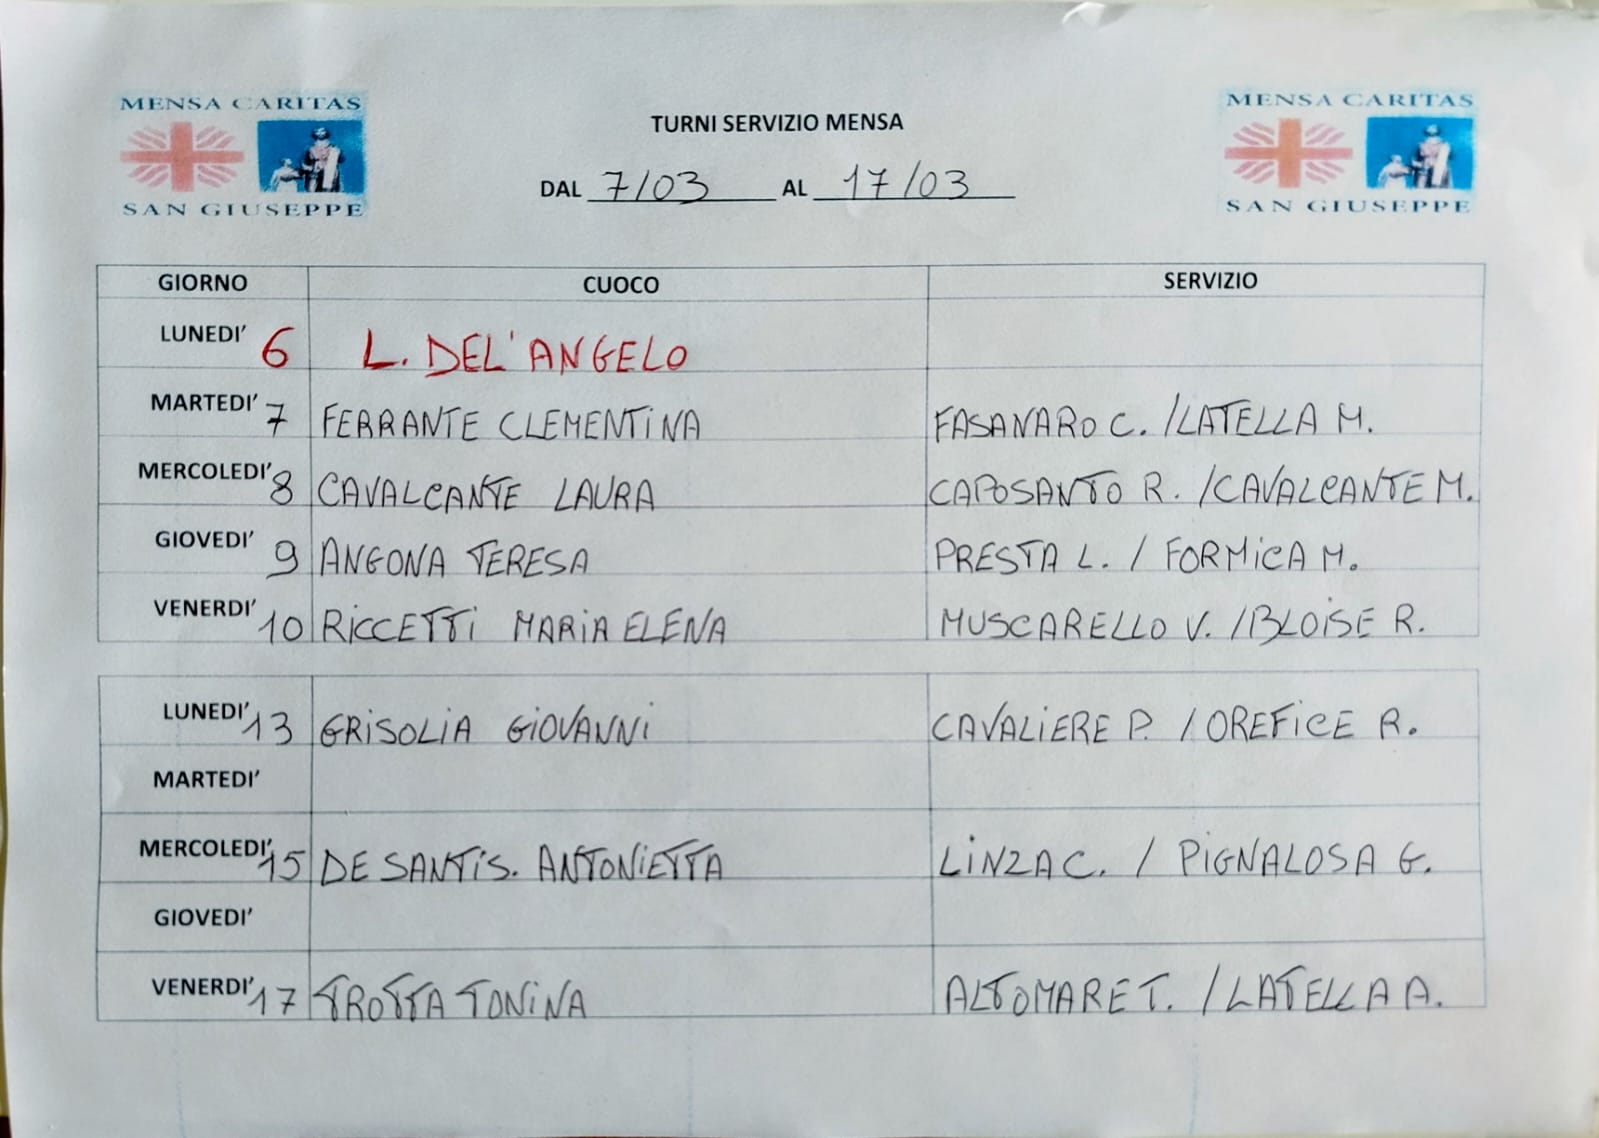 MENSA CARITAS
SAN GIUSEPPE
TURNI SERVIZIO MENSA
DAL 7/03 AL 17/03
MENSA CARITAS
SAN GIUSEPPE
GIORNO CUOCO SERVIZIO
LUNEDI' 6 L. DEL'ANGELO
MARTEDI' 7 FERRANTE CLEMENTINA FASANARO C. /LATELLA M.
MERCOLEDI' 8 CAVALCANTE LAURA CAPOSANTO R. /CAVALCANTE M.
GIOVEDI' 9 ANGONA TERESA PRESTA L. / FORMICA M.
VENERDI' 10 RICCETTI MARIA ELENA MUSCARELLO V. /BLOISE R.
LUNEDI' 13 GRISOLIA GIOVANNI CAVALIERE P. / OREFICE R.
MARTEDI'
MERCOLEDI' 15 DE SANTIS. ANTONIETTA LINZA C. / PIGNALOSA G.
GIOVEDI'
VENERDI' 17 TROTTA TONINA ALTOMARE T. /LATELLA A.